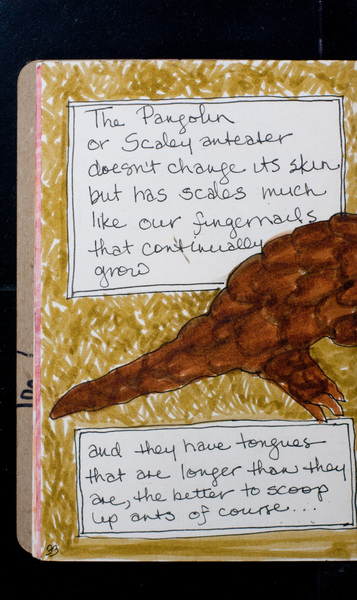 The Pangolin
or Scaley anteater
doesn't change its skin
but has scales much
like our fingernails
that continually
grow
and they have tongues
that are longer than they
are, the better to scoop
up ants of course...
93